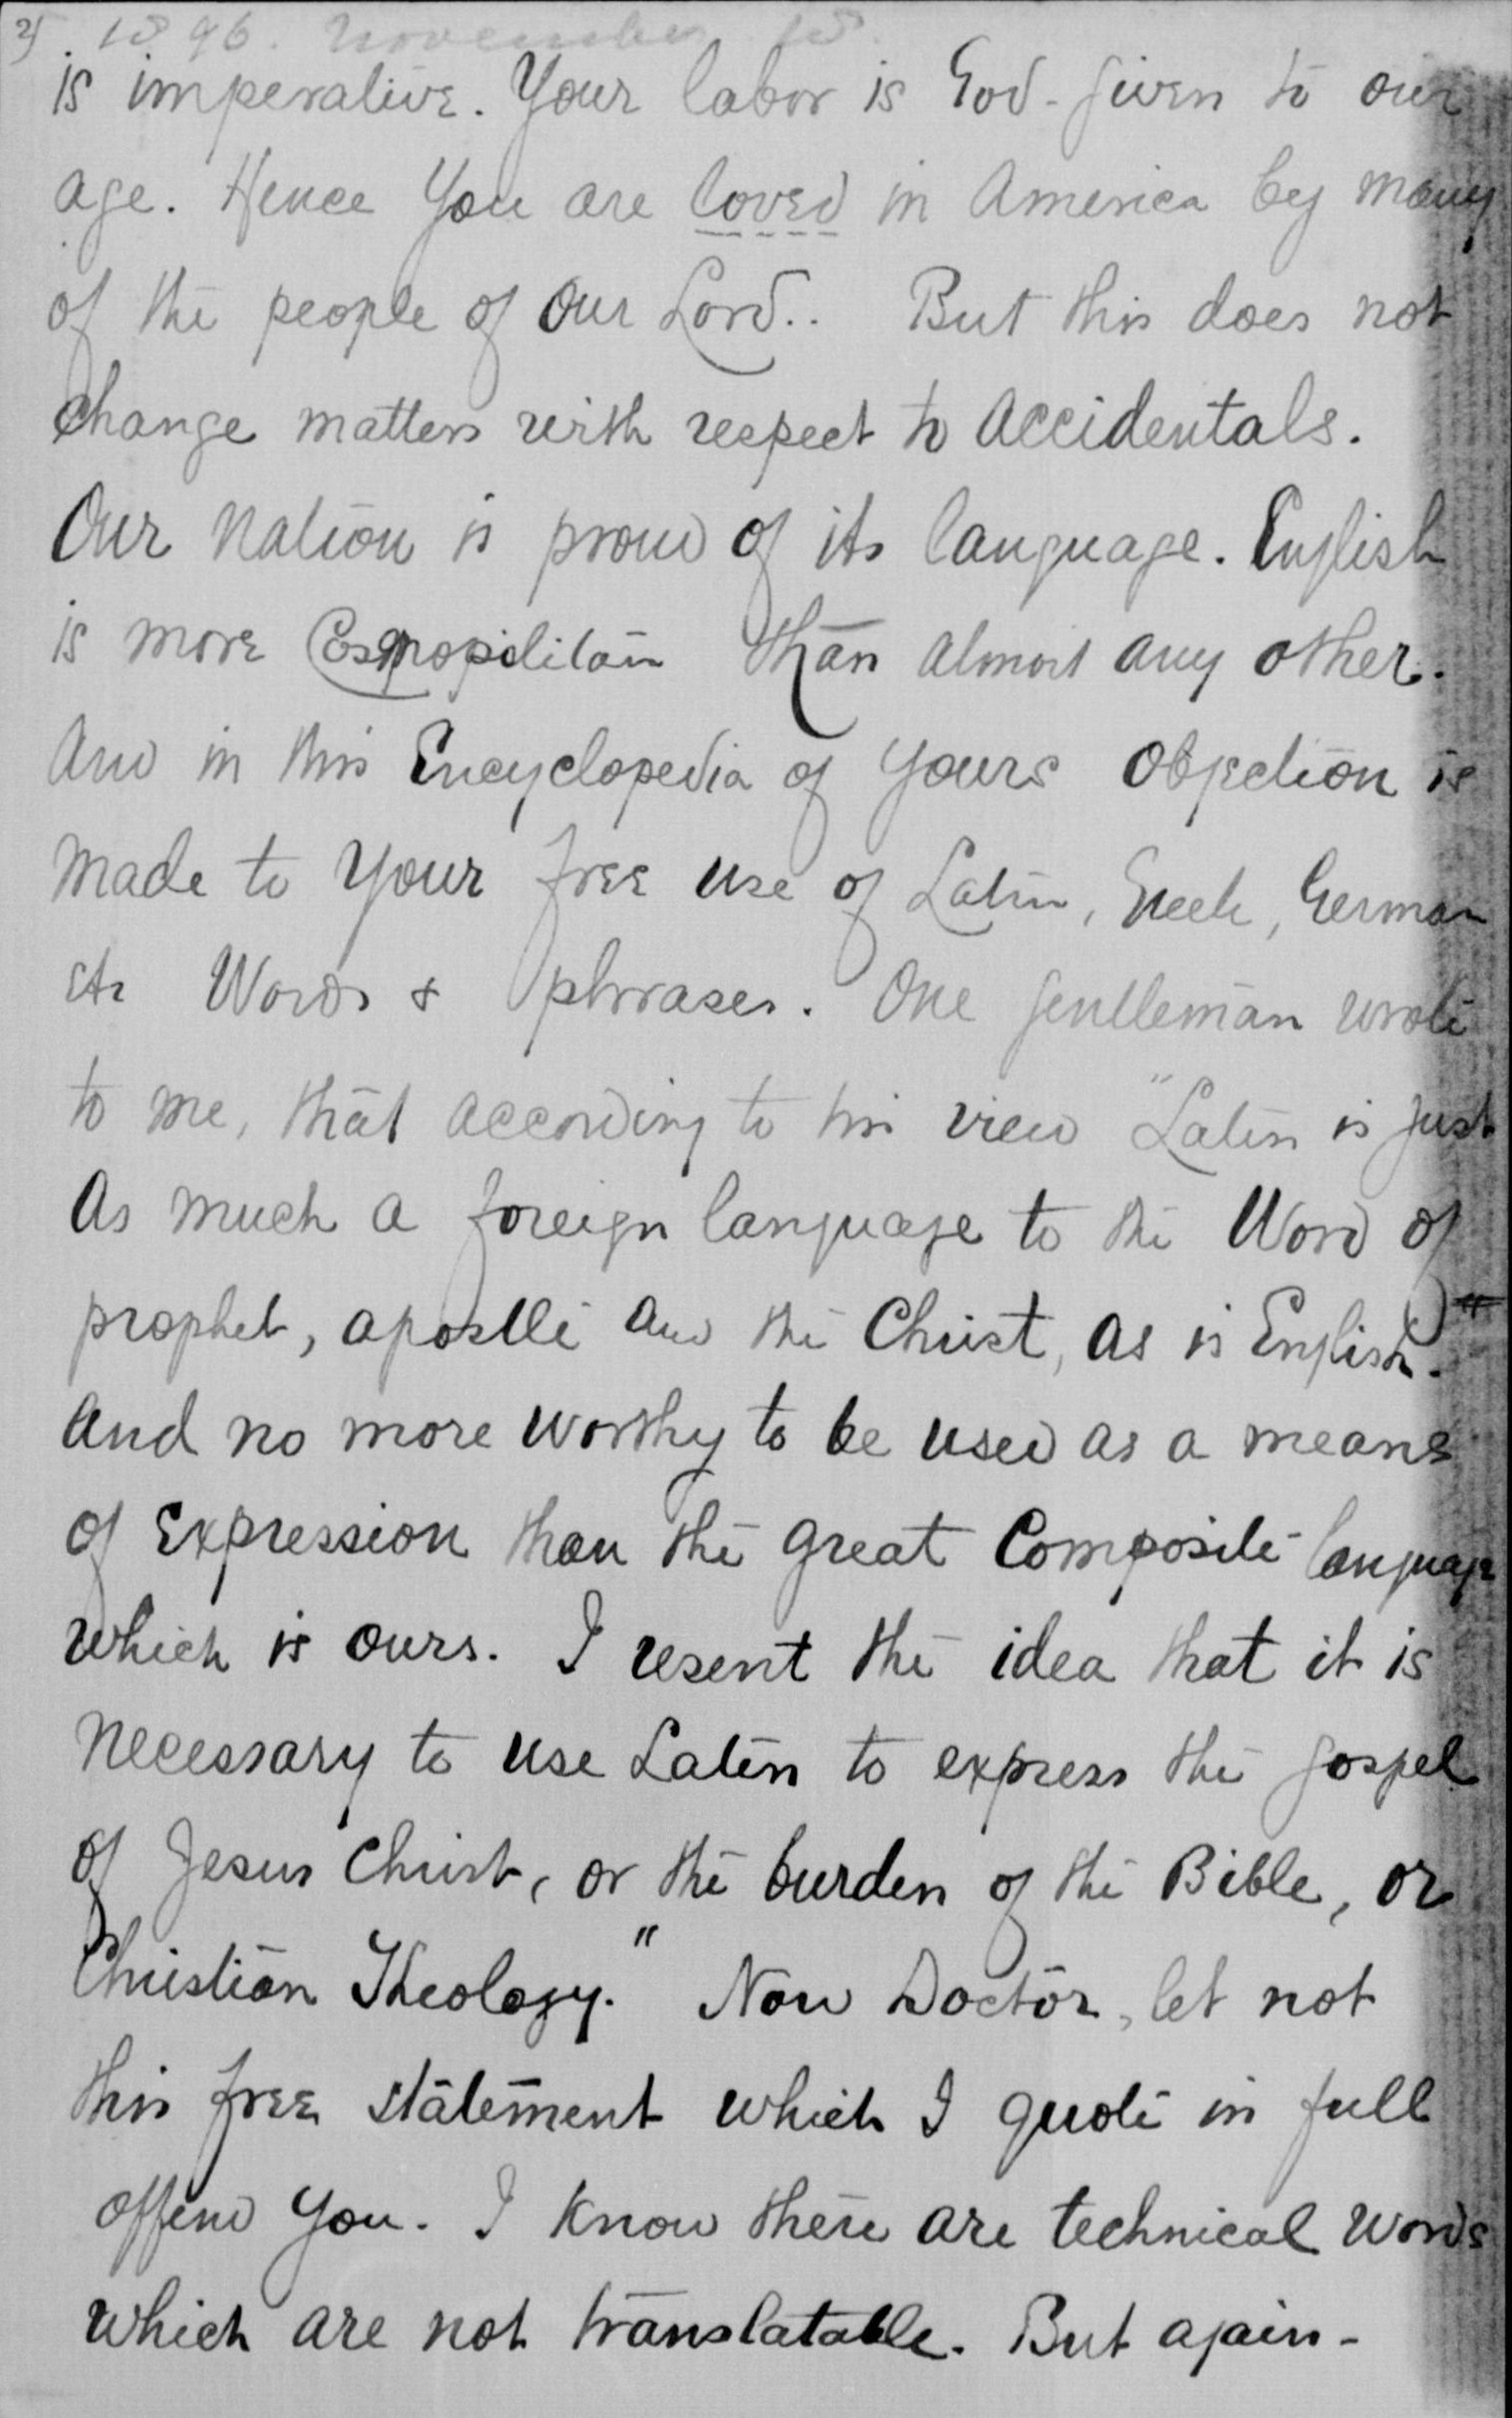 2) 1896. November 18.
is imperative. Your labor is God-given to our
age. Hence you are loved in America by many
of the people of our Lord.. But this does not
change matters with respect to accidentals.
Our nation is proud of its language. English
is more Cosmopolitan than almost any other.
And in this Encyclopedia of yours objection is
made to your free use of Latin, Greek, German
etc Words & phrases. One gentleman wrote
to me, that according to his view "Latin is just
as much a foreign language to the Word of
prophet, apostle and the Christ, as is English.
And no more worthy to be used as a means
of expression than the great composite language
which is ours. I resent the idea that it is
necessary to use Latin to express the gospel
of Jesus Christ, or the burden of the Bible, or
Christian Theology." Now Doctor, let not
this free statement which I quote in full
offend you. I know there are technical words
which are not translatable. But again-